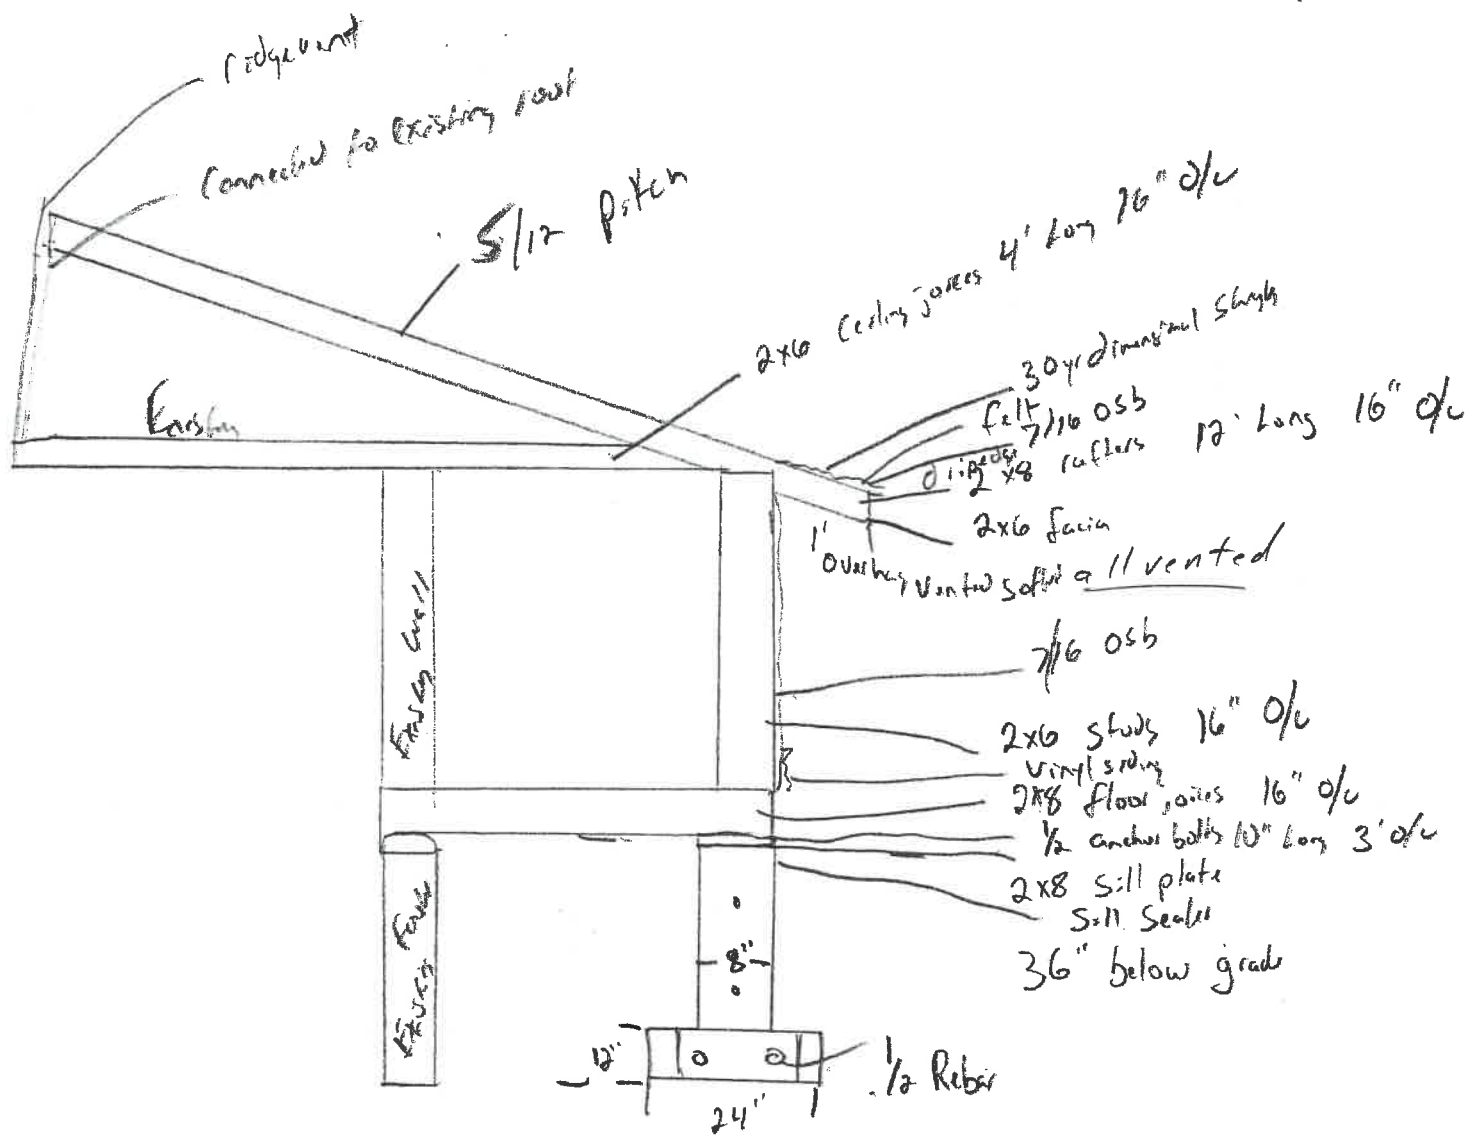 ridgevent
Connected to existing roof
5/12 pitch
2x6 Ceiling joices 4' Long 16" O/C
30yr dimensional Shingls
felt
7/16 OSB
dripedge
2x8 rafters 12' Long 16" O/C
2x6 facia
1'
Overhang vented soffit all vented
Existing
7/16 OSB
Existing Wall
2x6 studs 16" O/C
vinyl siding
2x8 floor joices 16" O/C
1/2 anchor bolts 10" Long 3' O/C
2x8 Sill plate
Sill Sealer
36" below grade
Existing
8"
12"
1/2 Rebar
24"